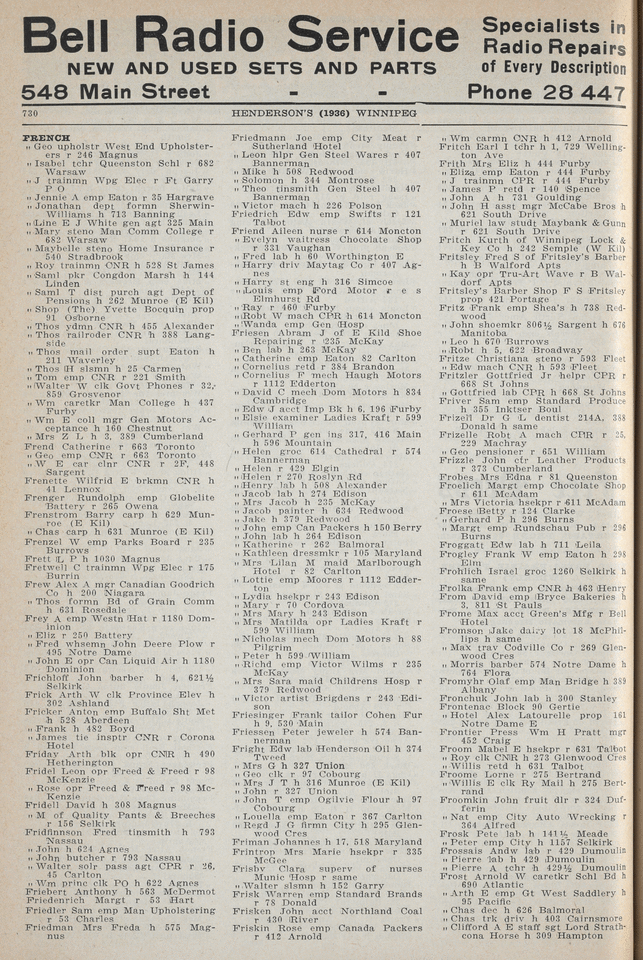 Bell Radio Service
NEW AND USED SETS AND PARTS
548 Main Street - -
Specialists in
Radio Repairs
of Every Description
Phone 28 447
730
HENDERSON'S (1936) WINNIPEG
FRENCH
„ Geo upholstr West End Upholster-
ers r 246 Magnus
„ Isabel tchr Queenston Schl r 682
Warsaw
„ J trainmn Wpg Elec r Ft Garry
P O
„ Jennie A emp Eaton r 35 Hargrave
„ Jonathan dept formn Sherwin-
Williams h 713 Banning
„ Line E J White gen agt 325 Main
„ Mary steno Man Comm College r
682 Warsaw
„ Maybelle steno Home Insurance r
540 Stradbrook
„ Roy trainmn CNR h 528 St James
„ Saml pkr Congdon Marsh h 144
Linden
„ Saml T dist purch agt Dept of
Pensions h 262 Munroe (E Kil)
„ Shop (The) Yvette Bocquin prop
91 Osborne
„ Thos ydmn CNR h 455 Alexander
„ Thos railroder CNR h 388 Lang-
side
„ Thos mail order supt Eaton h
211 Waverley
„ Thos H slsmn h 25 Carmen
„ Tom emp CNR r 221 Smith
„ Walter W clk Govt Phones r 32,
859 Grosvenor
„ Wm caretkr Man College h 437
Furby
„ Wm E coll mgr Gen Motors Ac-
ceptance h 160 Chestnut
„ Mrs Z L h 3, 389 Cumberland
Frend Catherine r 663 Toronto
„ Geo emp CNR r 663 Toronto
„ W E car clnr CNR r 2F, 448
Sargent
Frenette Wilfrid E brkmn CNR h
41 Lennox
Frenger Rundolph emp Globelite
Battery r 265 Owena
Frenstrom Barry carp h 629 Mun-
roe (E Kil)
„ Chas carp h 631 Munroe (E Kil)
Frenzel W emp Parks Board r 235
Burrows
Frett L P h 1030 Magnus
Fretwell C trainmn Wpg Elec r 175
Burrin
Frew Alex A mgr Canadian Goodrich
Co h 200 Niagara
„ Thos formn Bd of Grain Comm
h 631 Rosedale
Frey A emp Westn Hat r 1180 Dom-
inion
„ Eliz r 250 Battery
„ Fred whsemn John Deere Plow r
495 Notre Dame
„ John E opr Can Liquid Air h 1180
Dominion
Frichloff John barber h 4, 621½
Selkirk
Frick Arth W clk Province Elev h
302 Ashland
Fricker Anton emp Buffalo Sht Met
h 528 Aberdeen
„ Frank h 482 Boyd
„ James tie insptr CNR r Corona
Hotel
Friday Arth blk opr CNR h 490
Hetherington
Fridel Leon opr Freed & Freed r 98
McKenzie
„ Rose opr Freed & Freed r 98 Mc-
Kenzie
Fridell David h 308 Magnus
„ M of Quality Pants & Breeches
r 156 Selkirk
Fridfinnson Fred tinsmith h 793
Nassau
„ John h 624 Agnes
„ John butcher r 793 Nassau
„ Walter solr pass agt CPR r 26,
45 Carlton
„ Wm princ clk PO h 622 Agnes
Friebert Anthony h 563 McDermot
Friedenrich Margt r 53 Hart
Friedler Sam emp Man Upholstering
r 53 Charles
Friedman Mrs Freda h 575 Mag-
nus
Friedmann Joe emp City Meat r
Sutherland Hotel
„ Leon hlpr Gen Steel Wares r 407
Bannerman
„ Mike h 508 Redwood
„ Solomon h 344 Montrose
„ Theo tinsmith Gen Steel h 407
Bannerman
„ Victor mach h 226 Polson
Friedrich Edw emp Swifts r 121
Talbot
Friend Aileen nurse r 614 Moncton
„ Evelyn waitress Chocolate Shop
r 331 Vaughan
„ Fred lab h 60 Worthington E
„ Harry driv Maytag Co r 407 Ag-
nes
„ Harry st eng h 316 Simcoe
„ Louis emp Ford Motor r e s
Elmhurst Rd
„ Ray r 460 Furby
„ Robt W mach CPR h 614 Moncton
„ Wanda emp Gen Hosp
Friesen Abram J of E Kild Shoe
Repairing r 235 McKay
„ Ben lab h 263 McKay
„ Catherine emp Eaton 82 Carlton
„ Cornelius retd r 384 Brandon
„ Cornelius P mech Haugh Motors
r 1112 Edderton
„ David C mech Dom Motors h 834
Cambridge
„ Edw J acct Imp Bk h 6, 196 Furby
„ Elsie examiner Ladies Kraft r 599
William
„ Gerhard P gen ins 317, 416 Main
h 596 Mountain
„ Helen groc 614 Cathedral r 574
Bannerman
„ Helen r 429 Elgin
„ Helen r 270 Roslyn Rd
„ Henry lab h 508 Alexander
„ Jacob lab h 274 Edison
„ Mrs Jacob h 235 McKay
„ Jacob painter h 634 Redwood
„ Jake h 379 Redwood
„ John emp Can Packers h 150 Berry
„ John lab h 264 Edison
„ Katherine r 262 Balmoral
„ Kathleen dressmkr r 105 Maryland
„ Mrs Lilan M maid Marlborough
Hotel r 82 Carlton
„ Lottie emp Moores r 1112 Edder-
ton
„ Lydia hsekpr r 243 Edison
„ Mary r 70 Cordova
„ Mrs Mary h 243 Edison
„ Mrs Matilda opr Ladies Kraft r
599 William
„ Nicholas mech Dom Motors h 88
Pilgrim
„ Peter h 599 William
„ Richd emp Victor Wilms r 235
McKay
„ Mrs Sara maid Childrens Hosp r
379 Redwood
„ Victor artist Brigdens r 243 Edi-
son
Friesinger Frank tailor Cohen Fur
h 9, 530 Main
Friessen Peter jeweler h 574 Ban-
nerman
Fright Edwy lab Henderson Oil h 374
Tweed
„ Mrs G h 327 Union
„ Geo clk r 97 Cobourg
„ Mrs J T h 316 Munroe (E Kil)
„ John r 327 Union
„ John T emp Ogilvie Flour h 97
Cobourg
„ Louella emp Eaton r 367 Carlton
„ Regd J G firmn City h 295 Glen-
wood Cres
Friman Johannes h 17, 518 Maryland
Frintrop Mrs Marie hsekpr r 335
McGee
Frisby Clara superv of nurses
Munic Hosp r same
„ Walter slsmn h 152 Garry
Frisk Warren emp Standard Brands
r 78 Donald
Frisken John acct Northland Coal
r 430 River
Friskin Rose emp Canada Packers
r 412 Arnold
„ Wm carmn CNR h 412 Arnold
Fritch Earl I tchr h 1, 729 Welling-
ton Ave
Frith Mrs Eliz h 444 Furby
„ Eliza emp Eaton r 444 Furby
„ J trainmn CPR r 444 Furby
„ James P retd r 140 Spence
„ John A h 731 Goulding
„ John H asst mgr McCabe Bros h
621 South Drive
„ Muriel law studt Maybank & Gunn
r 621 South Drive
Fritch Kurth of Winnipeg Lock &
Key Co h 242 Semple (W Kil)
Fritsley Fred S of Fritsley's Barber
h B Walford Apts
„ Kay opr Tru-Art Wave r B Wal-
dorf Apts
Fritsley's Barber Shop F S Fritsley
prop 421 Portage
Fritz Frank emp Shea's h 738 Red-
wood
„ John shoemkr 806½ Sargent h 676
Manitoba
„ Leo h 670 Burrows
„ Robt h 5, 622 Broadway
Fritze Christiana steno r 593 Fleet
„ Edw mach CNR h 593 Fleet
Fritzler Gottfried Jr helpr CPR r
668 St Johns
„ Gottfried lab CPR h 668 St Johns
Friver Sam emp Standard Produce
h 355 Inktser Boul
Frizell Dr G L dentist 214A, 388
Donald h same
Frizelle Robt A mach CPR r 25,
229 Machray
„ Geo pensioner r 651 William
Frizzle John cfctr Leather Products
r 373 Cumberland
Frobes Mrs Edna r 81 Queenston
Froelich Margt emp Chocolate Shop
r 611 McAdam
„ Mrs Victoria hsekpr r 611 McAdam
Froese Betty r 124 Clarke
„ Gerhard P h 296 Burns
„ Margt emp Rundschau Pub r 296
Burns
Froggatt Edw lab h 711 Leila
Frogley Frank W emp Eaton h 298
Elm
Frohlich Israel groc 1260 Selkirk h
same
Frolka Frank emp CNR h 463 Henry
From David emp Bryce Bakeries h
3, 811 St Pauls
Frome Max acct Green's Mfg r Bell
Hotel
Fromson Jake dairy lot 18 McPhil-
lips h same
„ Max trav Codville Co r 269 Glen-
wood Cres
„ Morris barber 574 Notre Dame h
764 Flora
Fromyhr Olaf emp Man Bridge h 389
Albany
Fronchuk John lab h 300 Stanley
Frontenac Block 90 Gertie
„ Hotel Alex Latourelle prop 161
Notre Dame E
Frontier Press Wm H Pratt mgr
452 Craig
Froom Mabel E hsekpr r 631 Talbot
„ Roy clk CNR h 273 Glenwood Cres
„ Willis retd h 631 Talbot
Froome Lorne r 275 Bertrand
„ Willis E clk Ry Mail h 275 Bert-
rand
Froomkin John fruit dlr r 324 Duf-
ferin
„ Nat emp City Auto Wrecking r
364 Alfred
Frosk Pete lab h 141½ Meade
„ Peter emp City h 1157 Selkirk
Frossais Andw lab r 429 Dumoulin
„ Pierre lab h 429 Dumoulin
„ Pierre A tchr h 429½ Dumoulin
Frost Arnold W caretkr Schl Bd h
690 Atlantic
„ Arth E emp Gt West Saddlery h
95 Pacific
„ Chas dec h 626 Balmoral
„ Chas trk driv h 403 Cairnsmore
„ Clifford A E staff sgt Lord Strath-
cona Horse h 309 Hampton